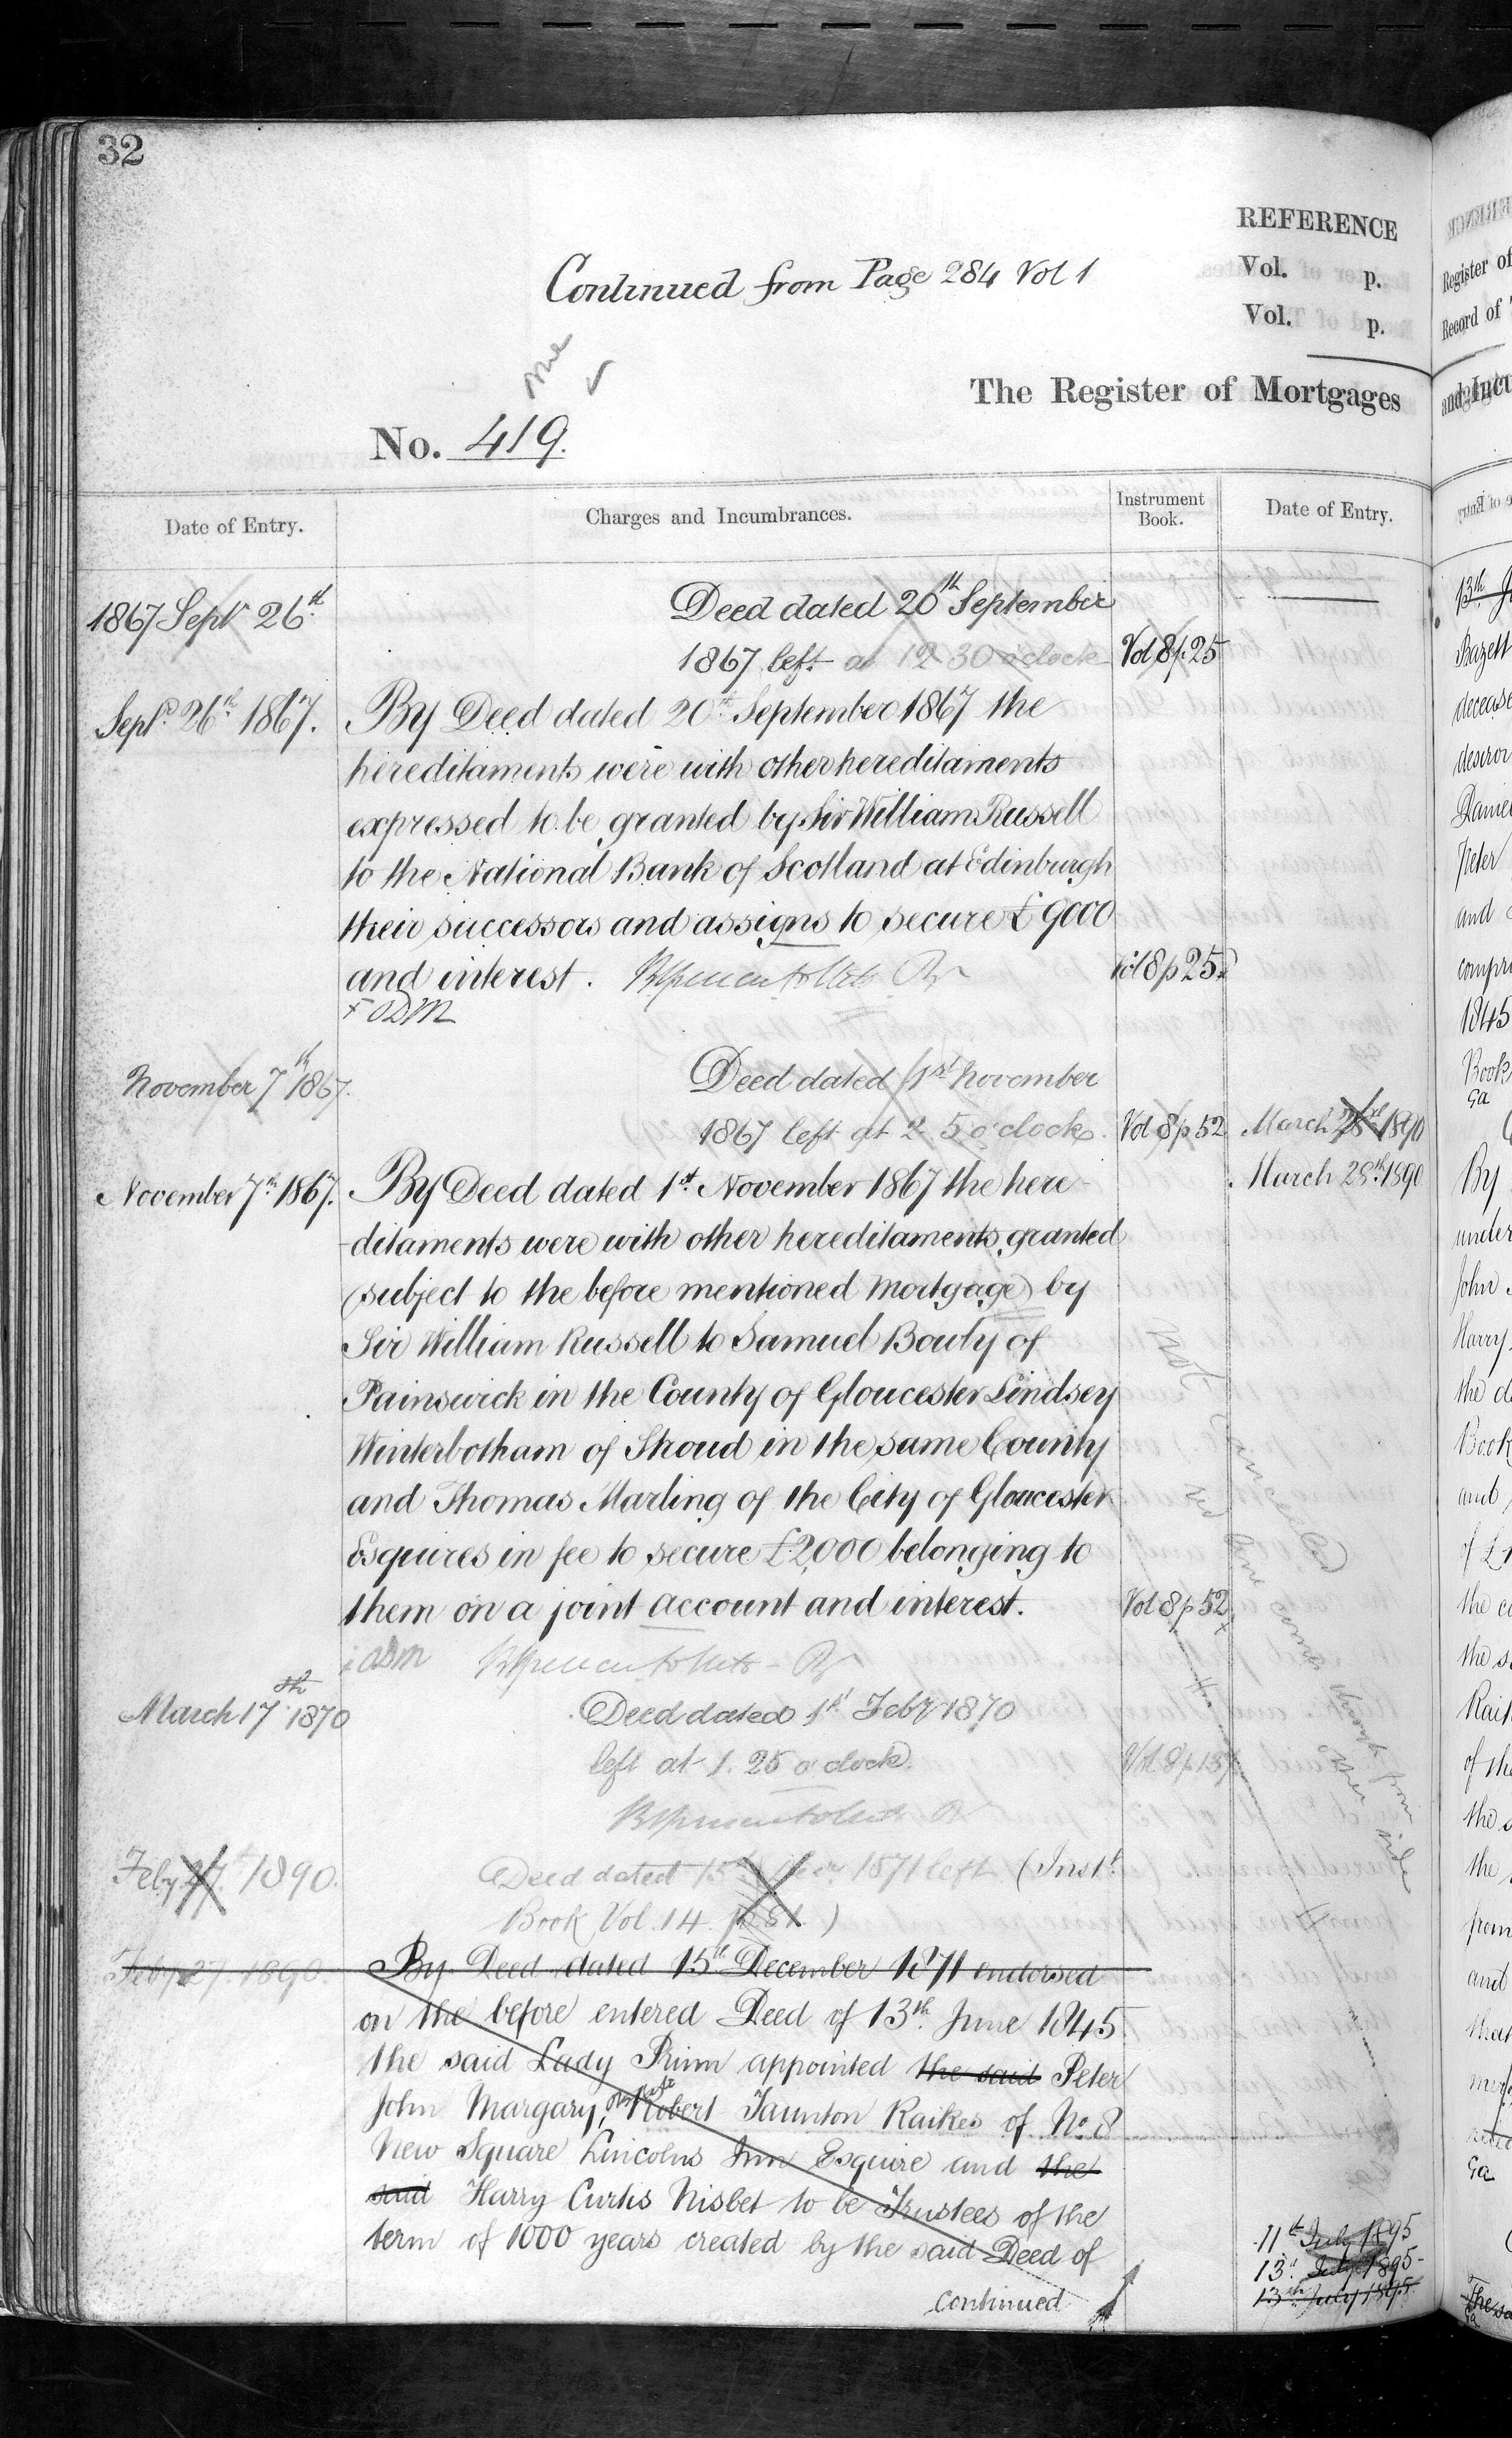 32
REFERENCE
Vol. p.
Vol. p.
Continued from Page 284 Vol 1
The Register of Mortgages
No. 419.
Date of Entry.
Charges and Incumbrances.
Instrument Book.
Date of Entry.
1867 Septr 26th
Deed dated 20th September
1867 left at 12 30 o'clock Vol 8 p 25
Septr 26th 1867. By Deed dated 20th September 1867 the
hereditaments were with other hereditaments
expressed to be granted by Sir William Russell
to the National Bank of Scotland at Edinburgh
their successors and assigns to secure £9000
and interest. Vol 8 p 25
November 7th 1867.
Deed dated 1st November
1867 left at 2. 5 o'clock. Vol 8 p 52 March 28th 1890
March 28th 1890
November 7th 1867. By Deed dated 1st November 1867 the here-
-ditaments were with other hereditaments granted
(subject to the before mentioned mortgage) by
Sir William Russell to Samuel Bowly of
Painswick in the County of Gloucester Lindsey
Winterbotham of Stroud in the same County
and Thomas Marling of the City of Gloucester
Esquires in fee to secure £2,000 belonging to
them on a joint account and interest. Vol 8 p 52
Not cancelled
come through from
other side
March 17th 1870
Deed dated 1st Feby 1870
left at 1. 25 o'clock. Vol 8 p 137
Feby 27 1890.
Deed dated 15th 1871 left (Inst.
Book Vol. 14. )
Feby 27. 1890. By Deed dated 15th December 1871 endorsed
on the before entered Deed of 13th June 1845
the said Lady Prinn appointed the said Peter
John Margary, Robert Taunton Raikes of No. 8
New Square Lincolns Inn Esquire and the
said Harry Curtis Nisbet to be Trustees of the
term of 1000 years created by the said Deed of
continued
11th July 1895
13th July 1895
13th July 1895